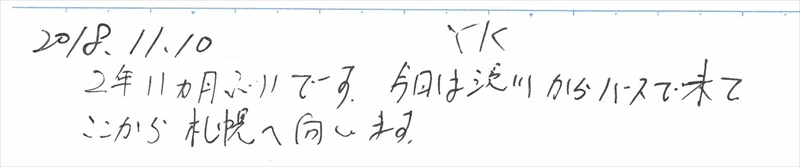 2018.11.10 YK
2年11カ月ぶりです。今日は滝川からバスで来て
ここから札幌へ向います。